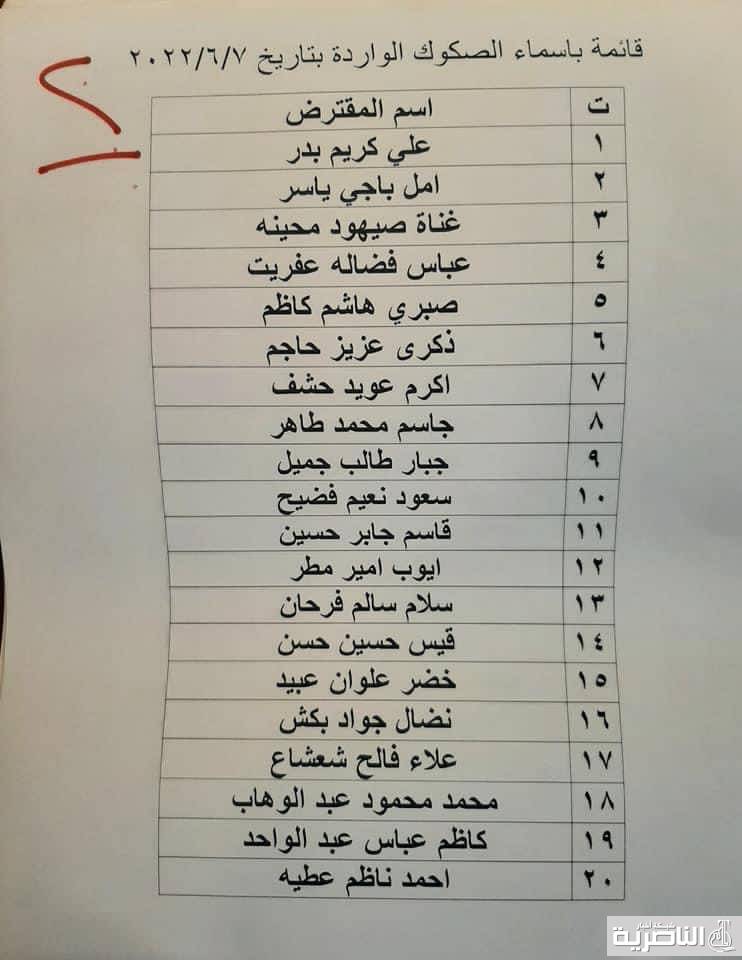 قائمة باسماء الصكوك الواردة بتاريخ ٢٠٢٢/٦/٧
ت اسم المقترض
١ علي كريم بدر
٢ امل باجي ياسر
٣ غناة صيهود محينه
٤ عباس فضاله عفريت
٥ صبري هاشم كاظم
٦ ذكرى عزيز حاجم
٧ اكرم عويد حشف
٨ جاسم محمد طاهر
٩ جبار طالب جميل
١٠ سعود نعيم فضيح
١١ قاسم جابر حسين
١٢ ايوب امير مطر
١٣ سلام سالم فرحان
١٤ قيس حسين حسن
١٥ خضر علوان عبيد
١٦ نضال جواد بكش
١٧ علاء فالح شعشاع
١٨ محمد محمود عبد الوهاب
١٩ كاظم عباس عبد الواحد
٢٠ احمد ناظم عطيه
شبكة اخبار
الناصرية